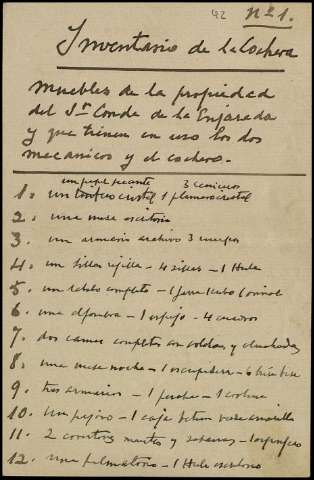 42 Nº 1.
Inventario de la Cochera
Muebles de la propiedad
del Sr Conde de la Enjarada
y que tienen en uso los dos
mecanicos y el cochero.
un papel secante 3 ceniceros
1. un tintero cristal 1 plumero cristal
2. una mesa escritorio
3. un armario archivo 3 cuerpos
4. un sillon rejilla - 4 sillas - 1 Hule
5. un lavabo completo - 1 jarra 1 cubo 1 orinal
6. una alfombra - 1 espejo - 4 cuadros
7. dos camas completas con colchon y almohadas
8. una mesa noche - 1 escupidera - 6
9. tres armarios - 1 percha - 1
10. un - 1 caja betun
11. 2 mantas y sabanas - 1
12. una palmatoria - 1 Hule escritorio